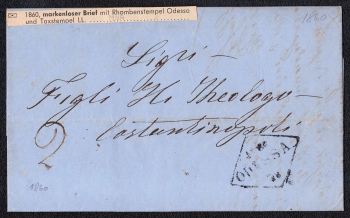 1860, markenloser Brief mit Rhombenstempel Odessa
und Taxstempel I.L.
1860
Sigri
Figli Th Theologo
Costantinopoli
2
ODESSA
1860